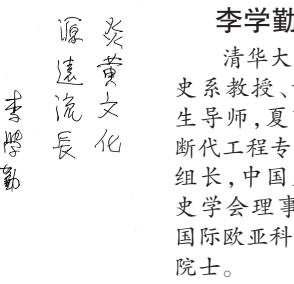 炎黄文化
源遠流長
李學勤
李学勤
清华大
史系教授、
生导师，夏
断代工程专
组长，中国
史学会理事
国际欧亚科
院士。